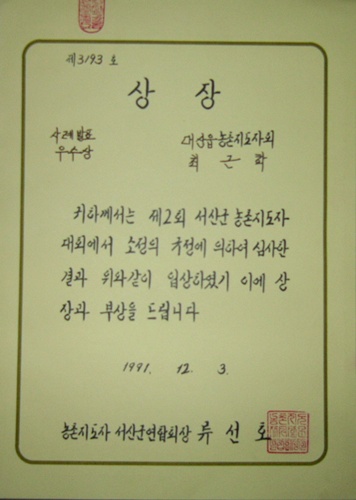 제3193호
상장
사례발표
우수상
대산읍농촌지도자회
최근학
귀하께서는 제2회 서산군 농촌지도자
대회에서 소정의 규정에 의하여 심사한
결과 위와같이 입상하였기 이에 상
장과 부상을 드립니다
1991. 12. 3.
농촌지도자 서산군연합회장 류선호